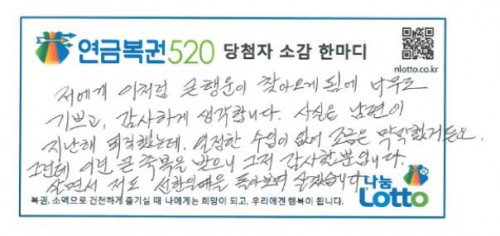 연금복권520 당첨자 소감 한마디
nlotto.co.kr
저에게 이처럼 큰행운이 찾아오게 됨에 너무도
기쁘고, 감사하게 생각합니다. 사실은 남편이
지난해 퇴직했는데, 일정한 수입이 없어 조금은 막막했거든요.
그런데 이런 큰 축복을 받으니 그저 감사할뿐입니다.
살면서 저도 선한일에을 돌아보며 살겠습니다
복권, 소액으로 건전하게 즐기실 때 나에게는 희망이 되고, 우리에겐 행복이 됩니다.
나눔
Lotto